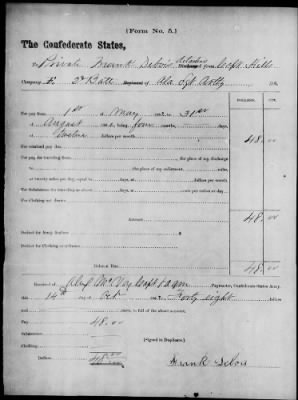 (Form No. 5.)
The Confederate States,
To Private Frank Capt. Hill's
Company E. 2d Batt. Regiment of Ala. Lgt. Artty Dr.
DOLLARS. CTS.
For pay from 1st of May 186 , to 31st
of August 186 , being four months, days,
at twelve dollars per month. 48.00
For retained pay due
For pay for traveling from the place of my discharge
to the place of my enlistment, miles,
at twenty miles per day, equal to days, at dollars per month.
For Subsistence for traveling as above, days at cents per ration or day.
For Clothing not drawn
Amount 48.00
Deduct for Army Sutlers
Deduct for Clothing overdrawn
Balance Due 48.00
Received of Capt. & aqm (Paymaster, Confederate States Army,)
this 14th day of Oct 186 , Forty eight
dollars and cents, in full of the above account.
Pay 48.00
Subsistence
Clothing
Dollars 48.00
(Signed in Duplicate.)
Frank